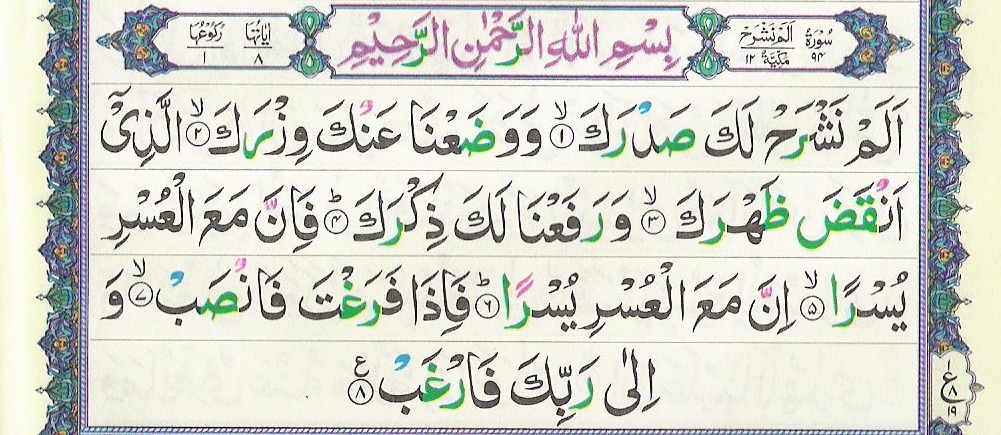 سُوْرَةُ ٩٤ اَلَمْ نَشْرَحْ مَكِّيَّةٌ ١٢
بِسْمِ اللهِ الرَّحْمٰنِ الرَّحِيْمِ
اٰيَاتُهَا ٨ رُكُوْعُهَا ١
اَلَمْ نَشْرَحْ لَكَ صَدْرَكَ ۙ﴿۱﴾ وَوَضَعْنَا عَنْكَ وِزْرَكَ ۙ﴿۲﴾ الَّذِیْۤ
اَنْقَضَ ظَهْرَكَ ۙ﴿۳﴾ وَ رَفَعْنَا لَكَ ذِكْرَكَ ؕ﴿۴﴾ فَاِنَّ مَعَ الْعُسْرِ
يُسْرًا ۙ﴿۵﴾ اِنَّ مَعَ الْعُسْرِ يُسْرًا ؕ﴿۶﴾ فَاِذَا فَرَغْتَ فَانْصَبْ ۙ﴿۷﴾ وَ
اِلٰى رَبِّكَ فَارْغَبْ ﴿۸﴾ ع
١ ع ٨ ١٩